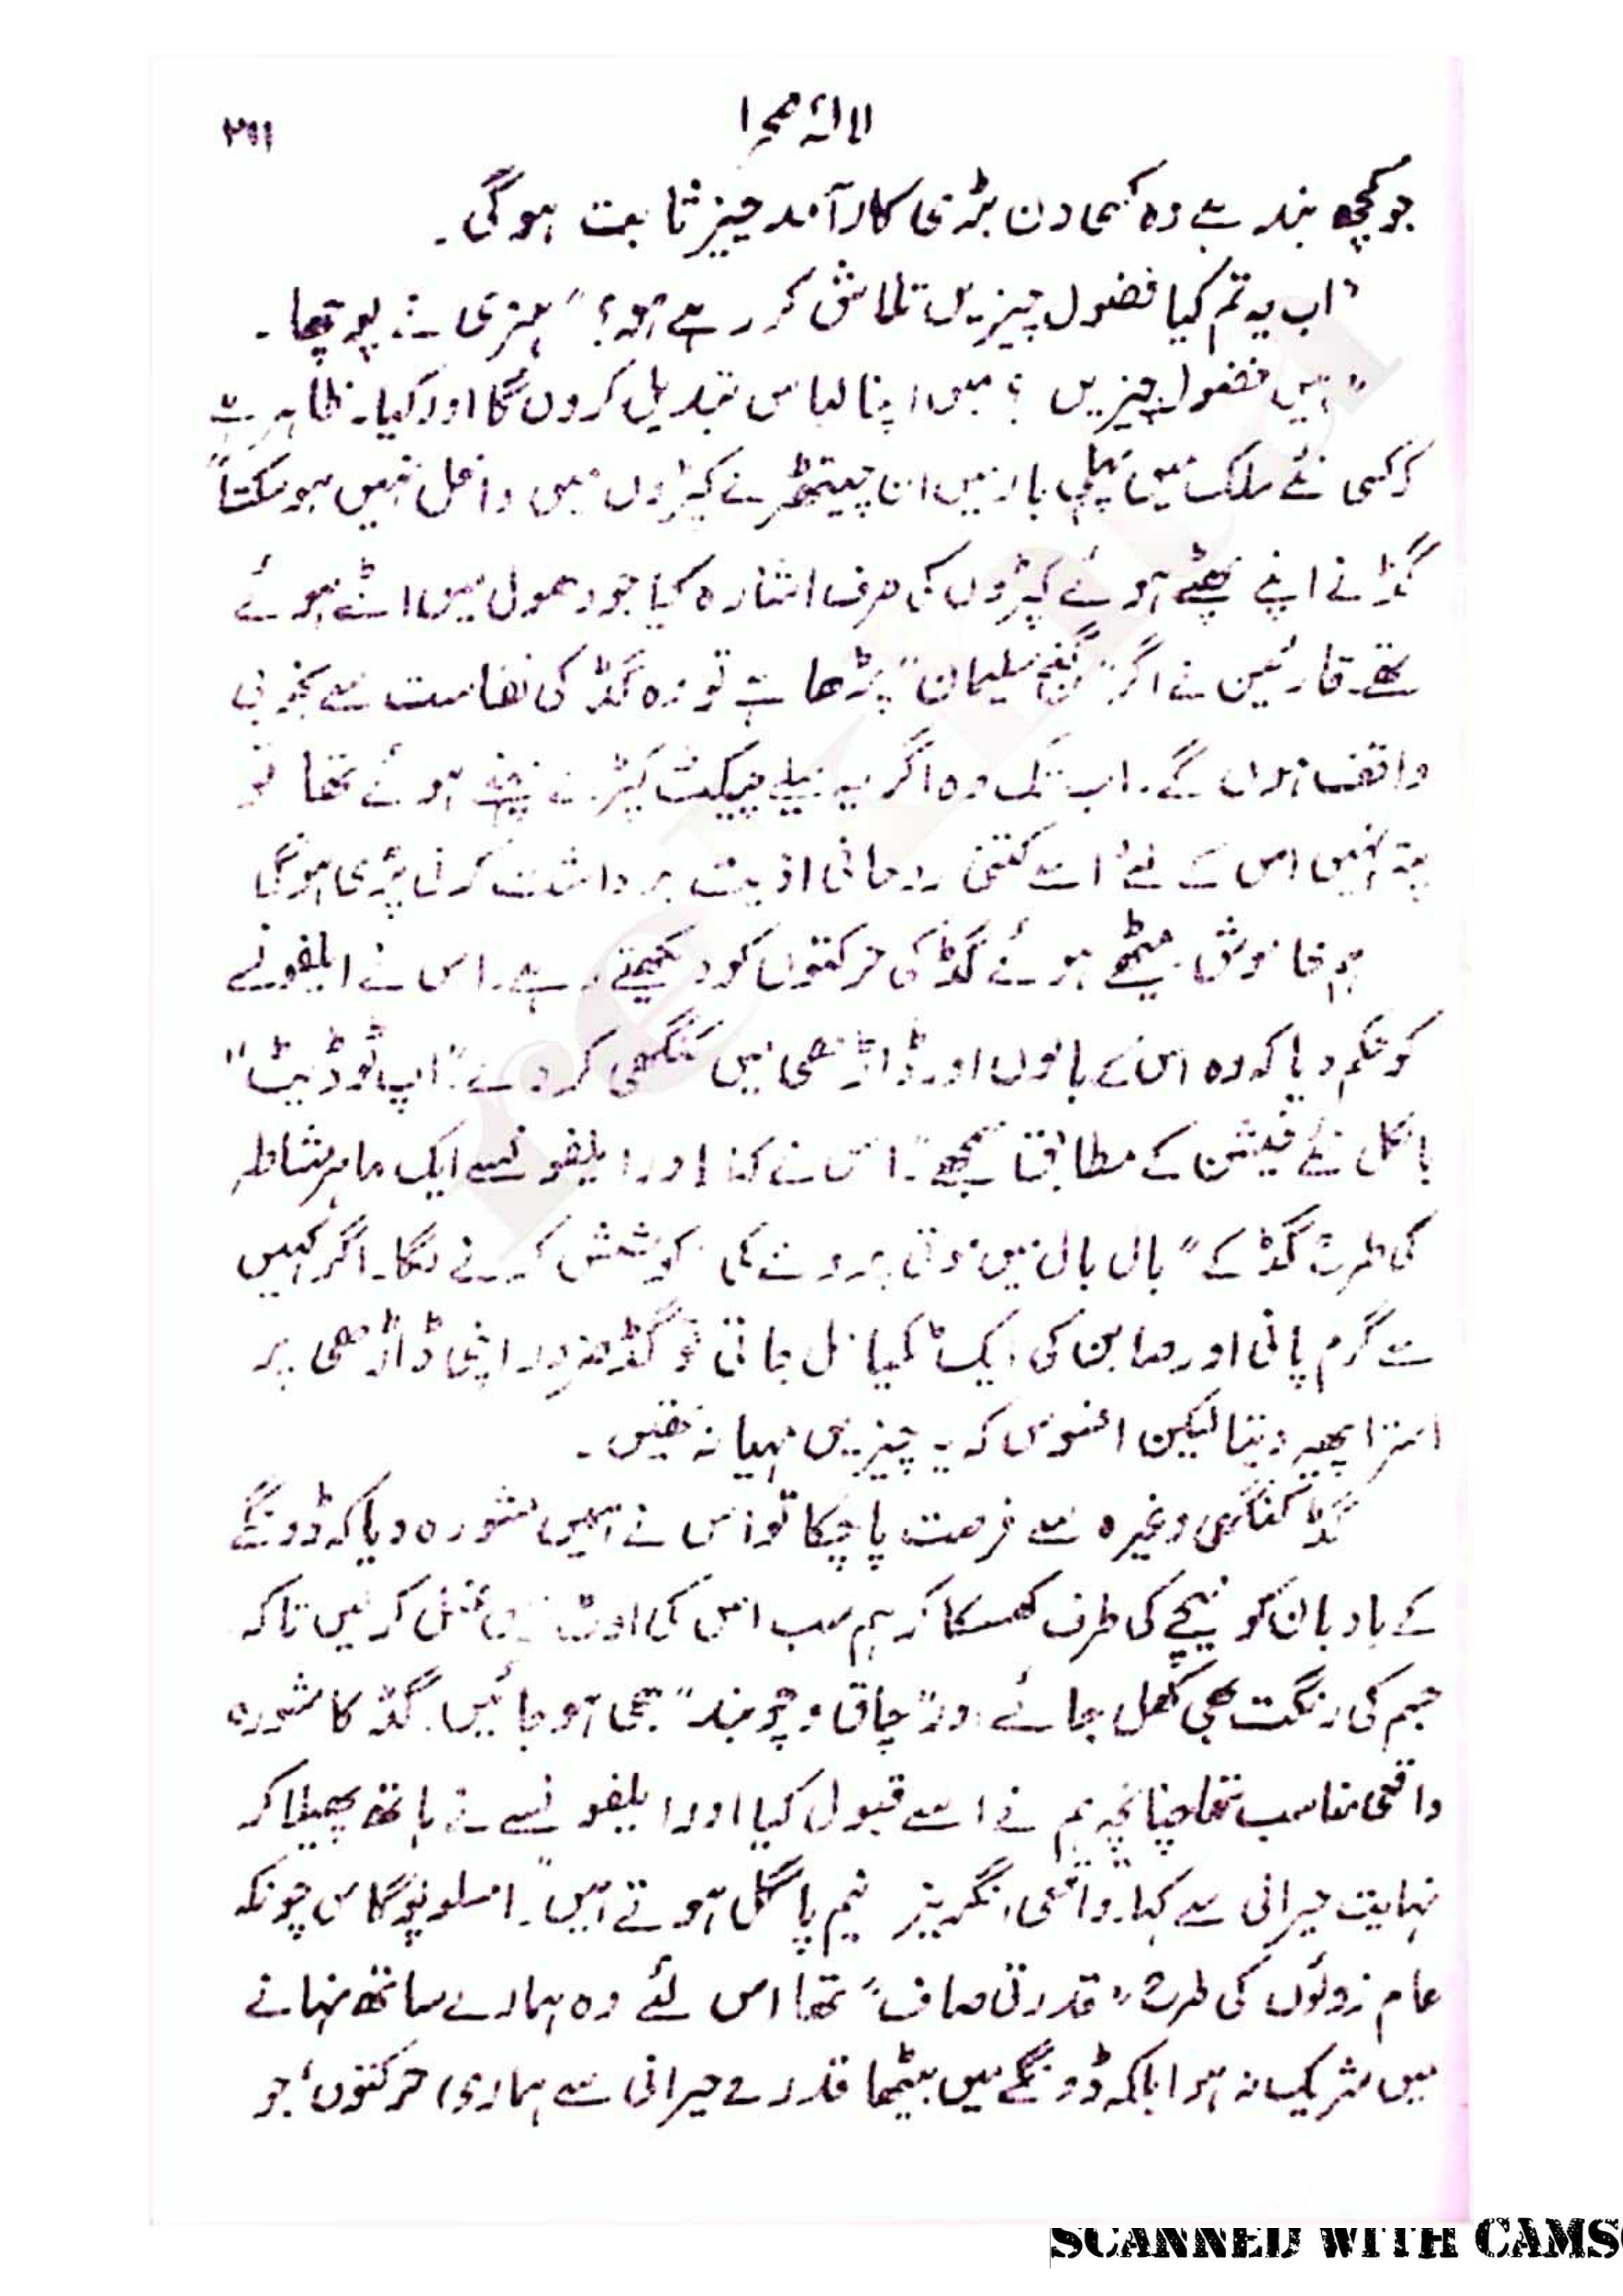 لالۂ صحرا
۲۱۱
جو کچھ بند ہے وہ کسی دن بڑی کار آمد چیز ثابت ہوگی۔
"اب یہ تم کیا فضول چیزیں تلاش کر رہے ہو؟" ہنری نے پوچھا۔
"ہیں فضول چیزیں؟ میں اپنا لباس تبدیل کروں گا اور کیا۔ ظاہر ہے
کہ کسی نئے ملک میں پہلی بار میں ان چیتھڑے کپڑوں میں داخل نہیں ہو سکتا"
گڈ نے اپنے پھٹے ہوئے کپڑوں کی طرف اشارہ کیا جو دھول میں اٹے ہوئے
تھے۔ قارئین نے اگر "گنج سلیمان" پڑھا ہے تو وہ گڈ کی نفاست سے بخوبی
واقف ہوں گے۔ اب تک وہ اگر یہ میلے چیکٹ کپڑے پہنے ہوئے تھا تو
پتہ نہیں اس کے لئے اسے کتنی روحانی اذیت برداشت کرنی پڑی ہوگی
ہم خاموش بیٹھے ہوئے گڈ کی حرکتوں کو دیکھتے رہے۔ اس نے ایلفونسے
کو حکم دیا کہ وہ اس کے بالوں اور ڈاڑھی میں کنگھی کر دے۔ "اپ ٹو ڈیٹ"
بالکل نئے فیشن کے مطابق سمجھے"۔ اس نے کہا اور ایلفونسے ایک ماہر مشاطہ
کی طرح گڈ کے "بال بال میں موتی پرونے کی کوشش کرنے لگا۔ اگر کہیں
سے گرم پانی اور صابن کی ایک ٹکیا مل جاتی تو گڈ ضرور اپنی ڈاڑھی پر
استرا پھیر دیتا لیکن افسوس کہ یہ چیزیں مہیا نہ تھیں۔
گڈ کنگھی وغیرہ سے فرصت پا چکا تو اس نے ہمیں مشورہ دیا کہ ڈونگے
کے بادبان کو نیچے کی طرف کھسکا کر ہم سب اس کی اوٹ میں غسل کر لیں تاکہ
جسم کی رنگت بھی کھل جائے اور "چاق و چوبند" بھی ہو جائیں۔ گڈ کا مشورہ
واقعی مناسب تھا چنانچہ ہم نے اسے قبول کیا اور ایلفونسے نے ہاتھ پھیلا کر
نہایت حیرانی سے کہا۔ "واقعی انگریز نیم پاگل ہوتے ہیں"۔ امسلوپوگاس چونکہ
عام زولوؤں کی طرح "قدرتی صاف" تھا اس لئے وہ ہمارے ساتھ نہانے
میں شریک نہ ہوا بلکہ ڈونگے میں بیٹھا قدرے حیرانی سے ہماری حرکتوں، جو
SCANNED WITH CAMS